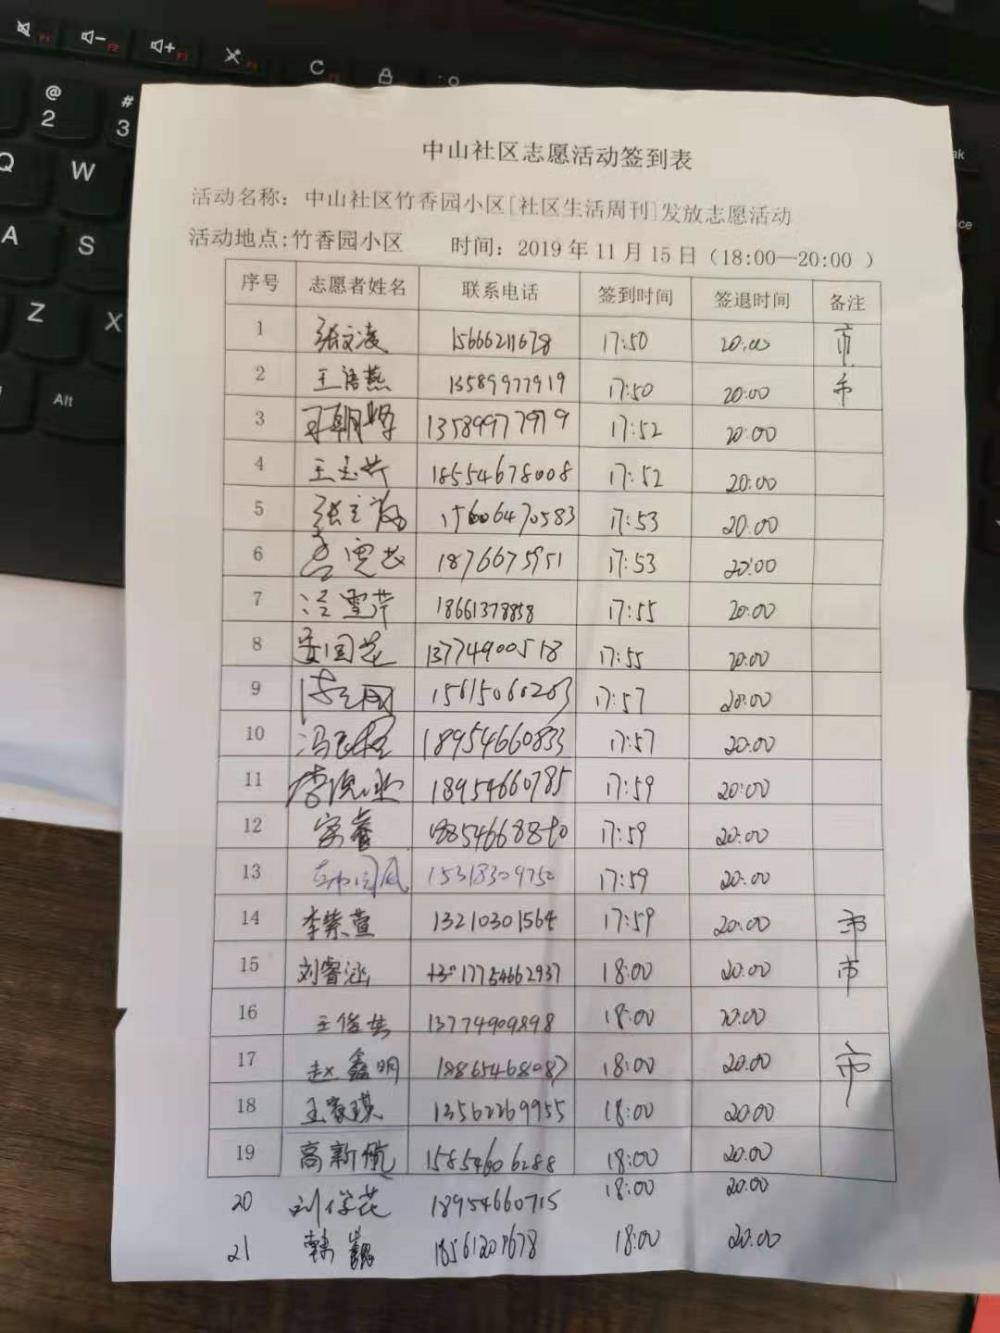 中山社区志愿活动签到表
活动名称：中山社区竹香园小区[社区生活周刊]发放志愿活动
活动地点:竹香园小区 时间：2019年11月15日（18:00—20:00 ）
序号 志愿者姓名 联系电话 签到时间 签退时间 备注
1 张文凌 15666211678 17:50 20:00 市
2 王语燕 13589977919 17:50 20:00 市
3 13589977979 17:52 20:00
4 18554678008 17:52 20:00
5 15606470583 17:53 20:00
6 18766675951 17:53 20:00
7 18661378858 17:55 20:00
8 13774900518 17:55 20:00
9 15615060263 17:57 20:00
10 18954660833 17:57 20:00
11 18954660785 17:59 20:00
12 17:59 20:00
13 15318309750 17:59 20:00
14 李紫萱 13210301564 17:59 20:00 市
15 刘睿涵 17754662937 18:00 20:00 市
16 13774909898 18:00 20:00
17 赵鑫明 18865468087 18:00 20:00 市
18 13562269955 18:00 20:00
19 高新航 15854606288 18:00 20:00
20 18954660715 18:00 20:00
21 18561207678 18:00 20:00